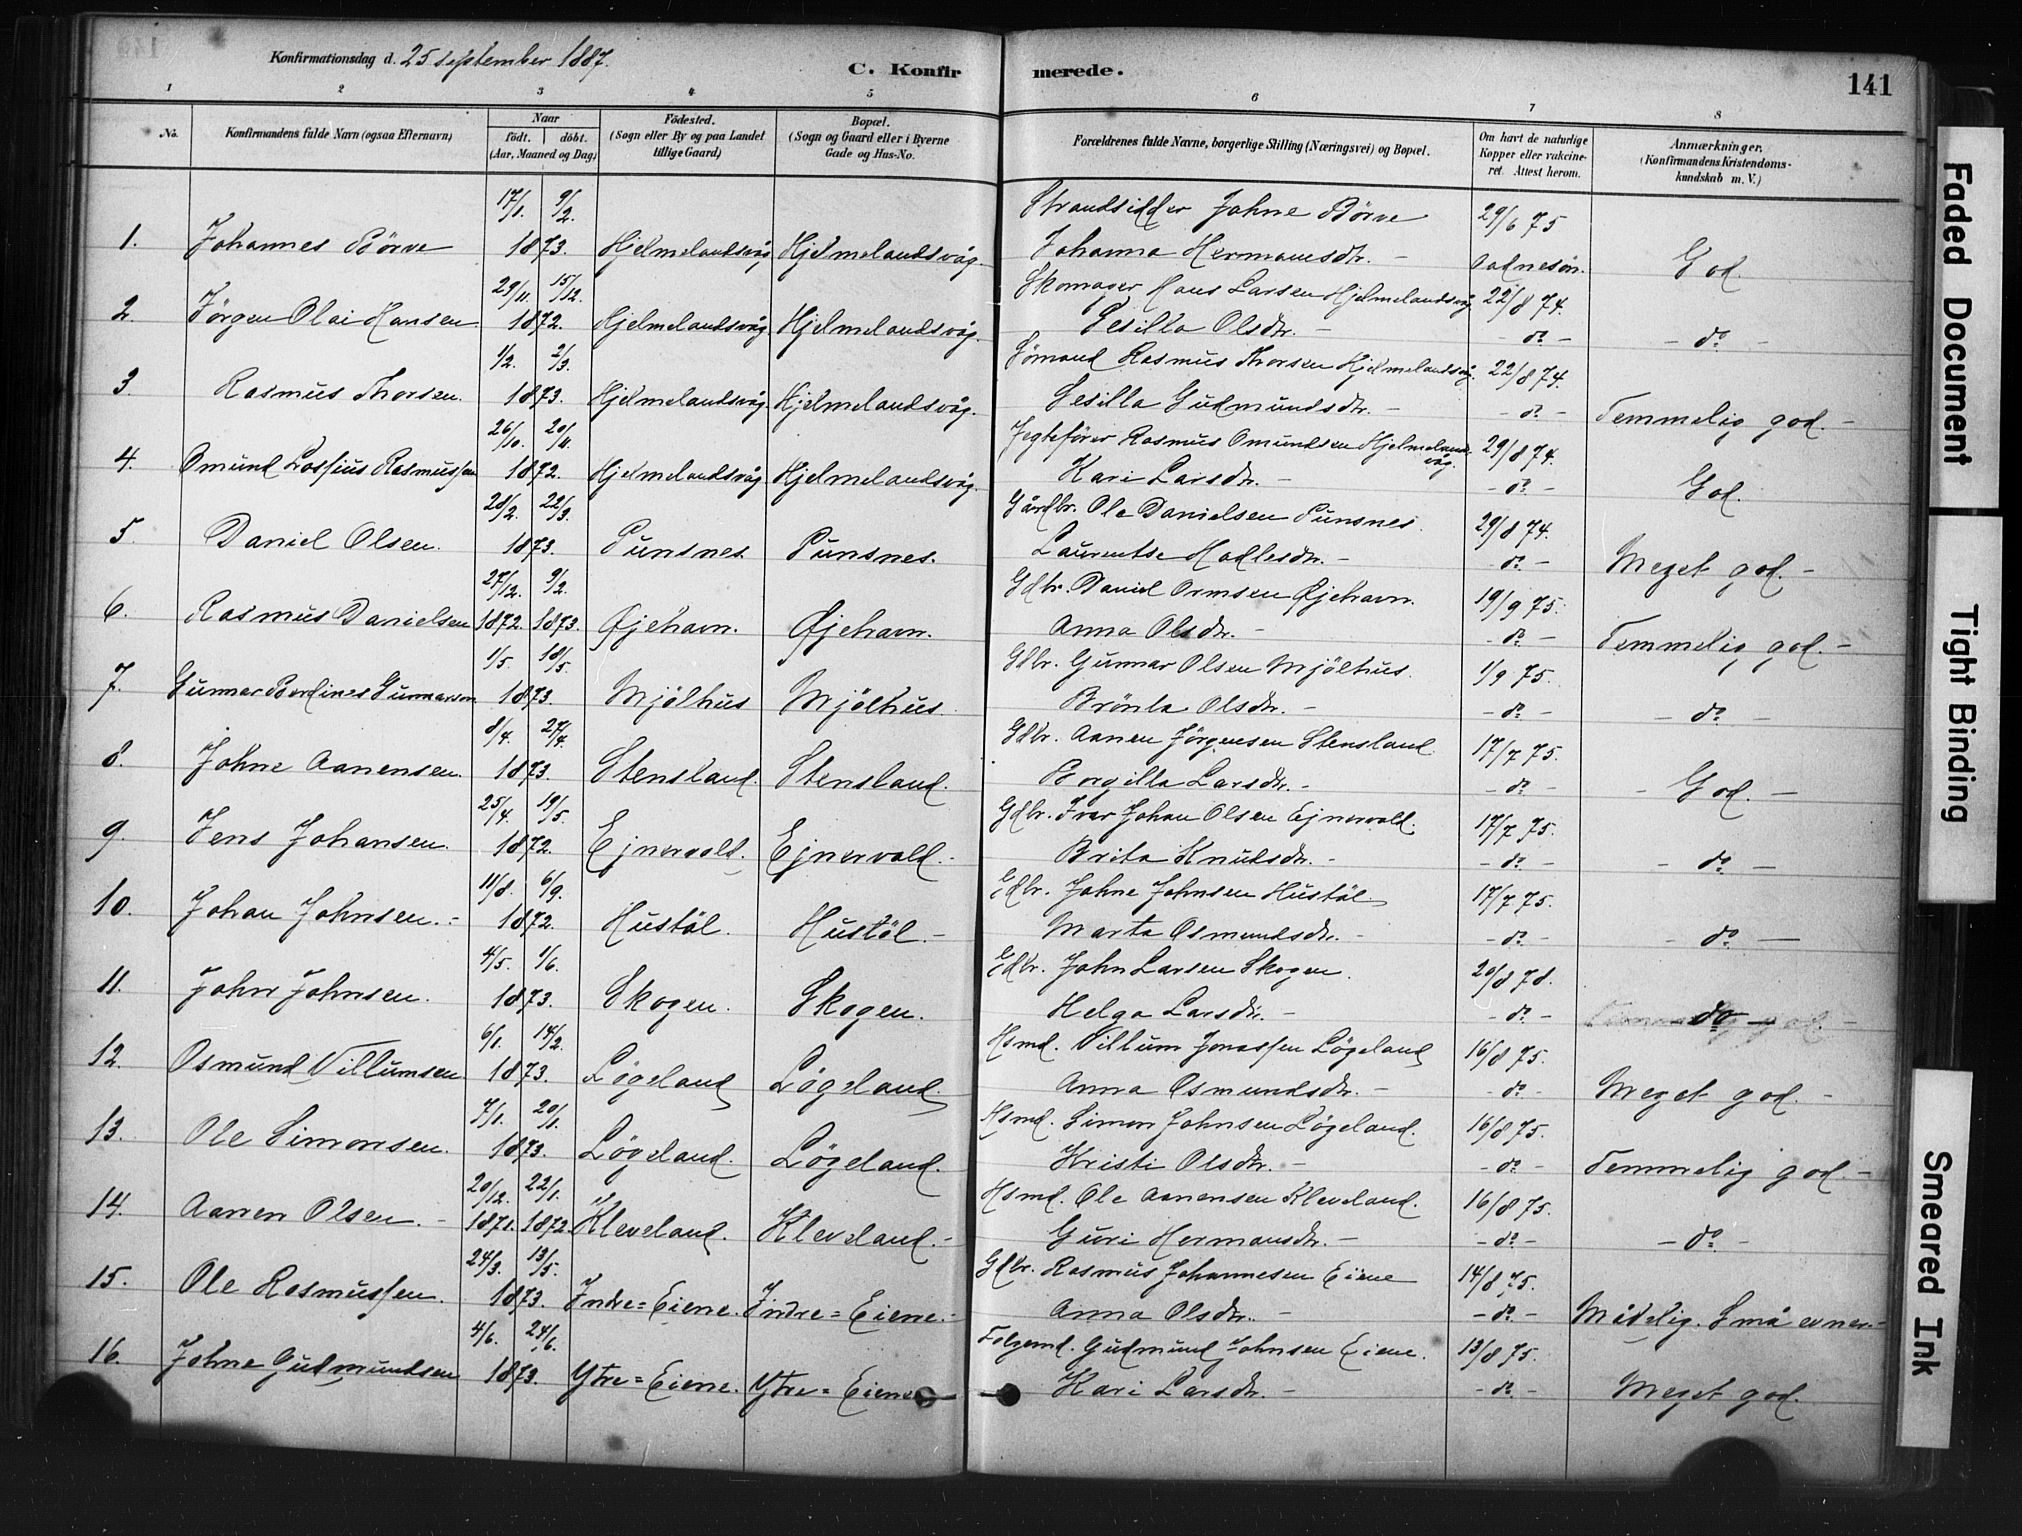 Konfirmationsdag d. 25 september 1887.
C. Konfirmerede.
141
1 2 3 4 5 6 7 8
No. Konfirmandens fulde Navn (ogsaa Efternavn) Naar født. døbt. (Aar, Maaned og Dag) Fødested. (Sogn eller By og paa Landet tillige Gaard) Bopæl. (Sogn og Gaard eller i Byerne Gade og Hus-No. Forældrenes fulde Navne, borgerlige Stilling (Næringsvei) og Bopæl. Om havt de naturlige Kopper eller vakcineret. Attest herom. Anmærkninger. (Konfirmandens Kristendomskundskab m. V.)
17/1. 9/2. Strandsidder Johne Börve 29/6 75
1. Johannes Börve 1873. Hjelmelandsvåg Hjelmelandsvåg. Johanna Hermansdtr. - God.
29/11. 15/12. Skomager Hans Larsen Hjelmelandsvåg 22/8 74.
2. Jörgen Olai Hansen 1872. Hjelmelandsvåg Hjelmelandsvåg. Sesilla Olsdtr. - - do - - do -
1/2. 2/3. Sömand Rasmus Thorsen Hjelmelandsvåg. 22/8 74.
3. Rasmus Thorsen. 1873. Hjelmelandsvåg. Hjelmelandsvåg. Sesilla Gudmundsdtr. - - do - Temmelig god. -
26/10. 20/11. Jegtefører Rasmus Omundsen Hjelmelandsvåg. 29/8 74.
4. Omund Lossius Rasmussen 1872. Hjelmelandsvåg Hjelmelandsvåg. Kari Larsdtr. - - do - God.
20/2. 22/3. Gårdbr. Ole Danielsen Punsnes. 29/8 74.
5. Daniel Olsen. 1873. Punsnes. Punsnes. Laurentse Hadlesdtr. - - do - Meget god. -
27/12. 9/2. Gdbr. Daniel Ormsen Øjehavn. 19/9 75.
6. Rasmus Danielsen 1872. 1873. Øjehavn. Øjehavn. Anna Olsdtr. - - do - Temmelig god. -
1/5. 18/5. Gdbr. Gunnar Olsen Mjölhus. 1/9 75.
7. Gunnar Berdines Gunnarsen 1873. Mjölhus Mjölhus. Brönla Olsdtr. - - do - - do -
8/4. 27/4. Gdbr. Aanen Jörgensen Stensland. 17/7 75.
8. Johne Aanensen. 1873. Stensland. Stensland. Borgilla Larsdtr. - - do - - God. -
25/4. 19/5. Gdbr. Ivar Johan Olsen Ejnervold. 17/7 75.
9. Jens Johansen. 1872. Ejnervold. Ejnervold. - Brita Knudsdtr. - - do - - do -
11/8. 6/9. Gdbr. Johne Johnsen Hustöl. 17/7 75.
10. Johan Johnsen. - 1872. Hustöl. Hustöl. - Marta Osmundsdtr. - - do - - do -
4/5. 1/6. Gdbr. John Larsen Skogen. 20/8 78.
11. John Johnsen. 1873. Skogen. Skogen. Helga Larsdtr. - - do - - do -
6/1. 14/2. Hsmd. Villum Jonassen Løgeland 16/8 75.
12. Osmund Villumsen 1873. Løgeland Løgeland. Anna Osmundsdtr. - - do - Meget god. -
7/1. 20/1. Hsmd. Simon Johnsen Løgeland. 16/8 75.
13. Ole Simonsen. 1873. Løgeland. Løgeland. Kristi Olsdtr. - - do - Temmelig god. -
20/12. 22/1. Hsmd. Ole Aanensen Kleveland. 16/8 75.
14. Aanen Olsen. - 1871. 1872. Kleveland. Kleveland. - Guri Hermansdtr. - - do - - do -
24/3. 13/5. Gdbr. Rasmus Johannesen Eiene 14/8 75.
15. Ole Rasmussen. 1873. Indre = Eiene. Indre = Eiene. - Anna Olsdtr. - - do - Mådelig. Små evner. -
4/6. 24/6. Folgemd. Gudmund Johnsen Eiene. 13/8 75.
16. Johne Gudmundsen 1873. Ytre = Eiene. Ytre = Eiene Kari Larsdtr. - - do - Meget god.
Faded Document
Tight Binding
Smeared Ink